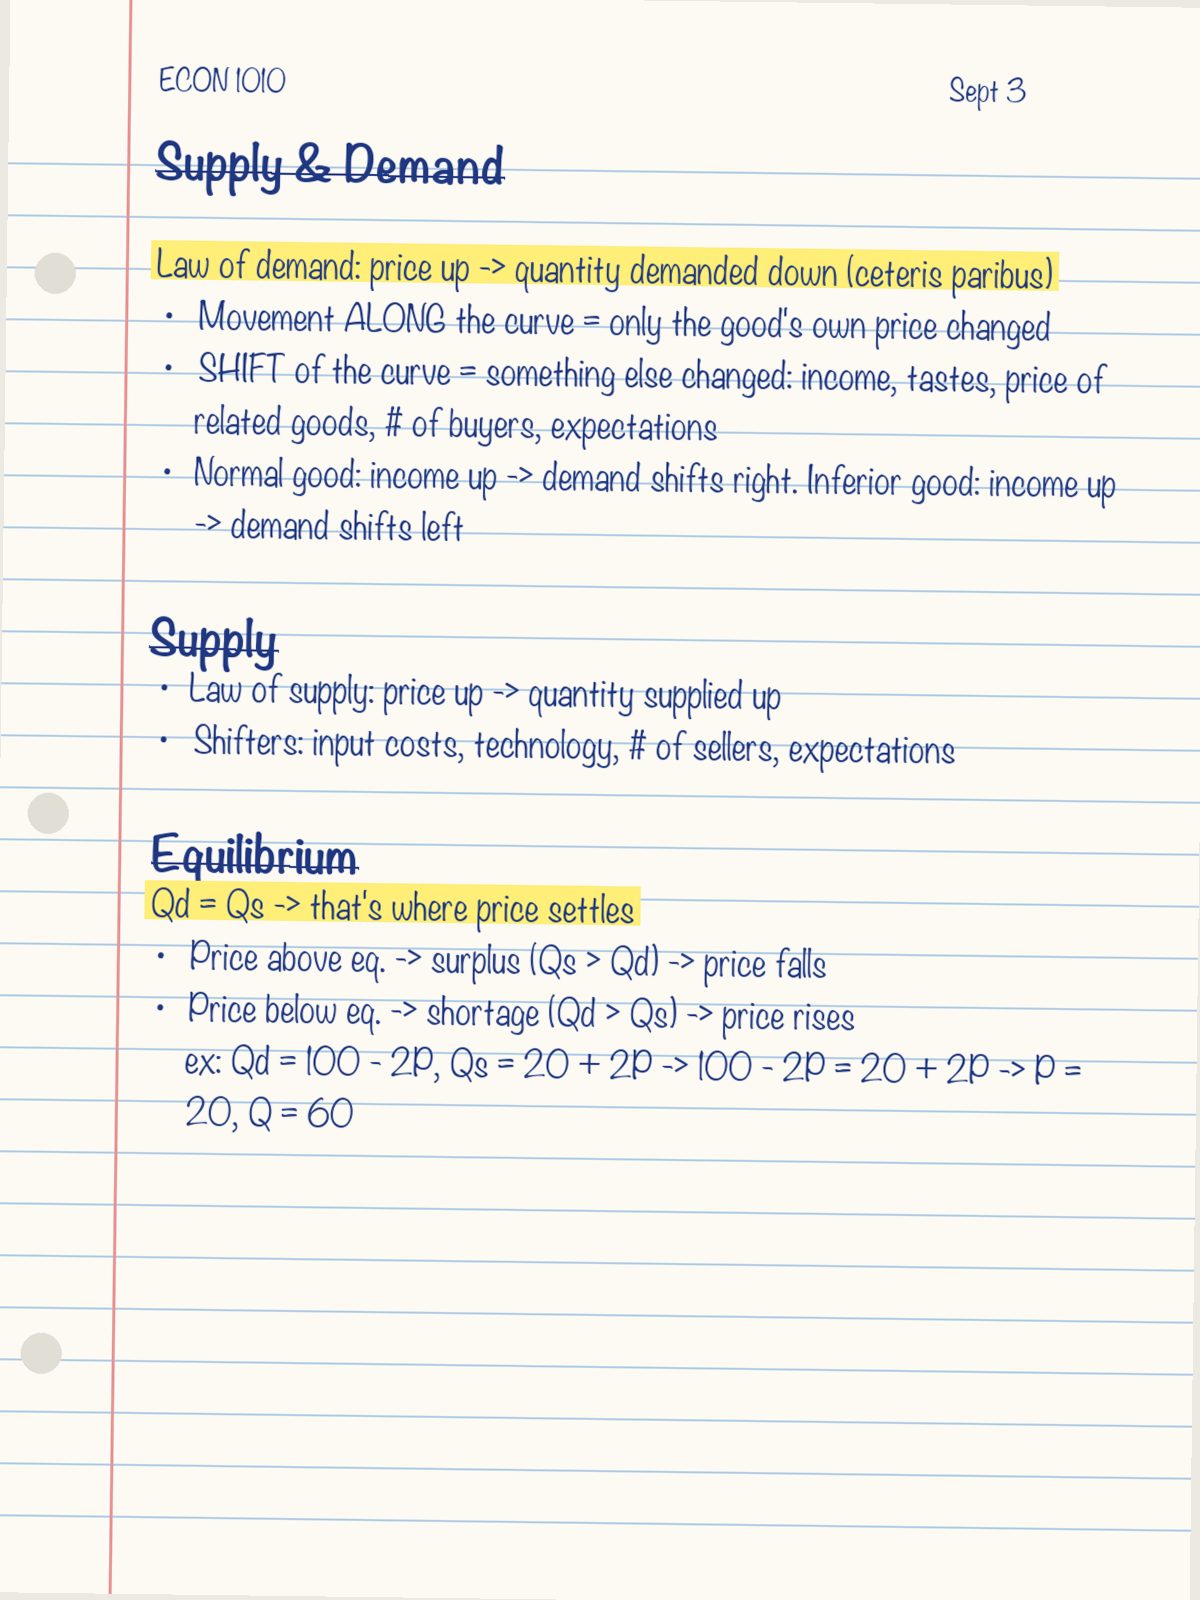 ECON 1010
Sept 3
Supply & Demand
Law of demand: price up -> quantity demanded down (ceteris paribus)
• Movement ALONG the curve = only the good's own price changed
• SHIFT of the curve = something else changed: income, tastes, price of
related goods, # of buyers, expectations
• Normal good: income up -> demand shifts right. Inferior good: income up
-> demand shifts left
Supply
• Law of supply: price up -> quantity supplied up
• Shifters: input costs, technology, # of sellers, expectations
Equilibrium
Qd = Qs -> that's where price settles
• Price above eq. -> surplus (Qs > Qd) -> price falls
• Price below eq. -> shortage (Qd > Qs) -> price rises
ex: Qd = 100 - 2P, Qs = 20 + 2P -> 100 - 2P = 20 + 2P -> P =
20, Q = 60